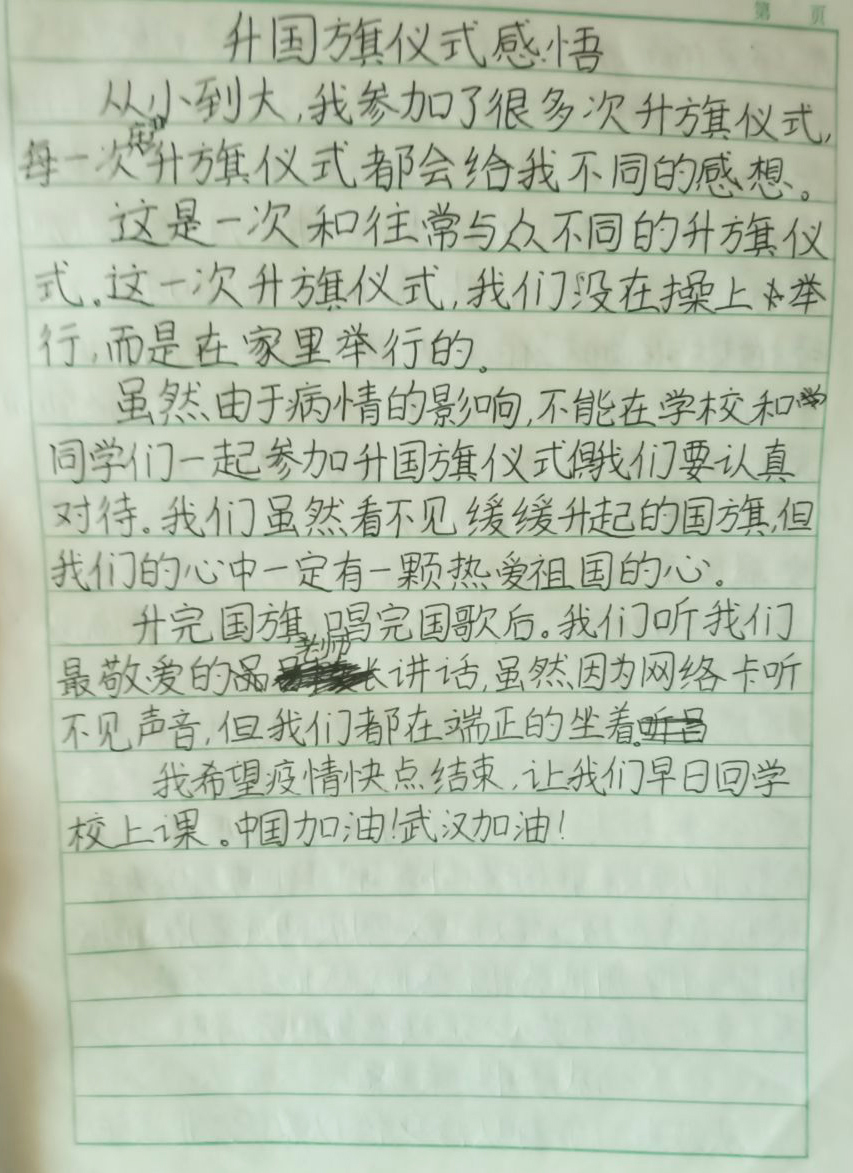 第 页
升国旗仪式感悟
从小到大,我参加了很多次升旗仪式,
每一次升旗仪式都会给我不同的感想。
这是一次和往常与众不同的升旗仪
式。这一次升旗仪式,我们没在操上举
行,而是在家里举行的。
虽然由于病情的影响,不能在学校和
同学们一起参加升国旗仪式但我们要认真
对待。我们虽然看不见缓缓升起的国旗,但
我们的心中一定有一颗热爱祖国的心。
升完国旗,唱完国歌后。我们听我们
老师
最敬爱的讲话,虽然因为网络卡听
不见声音,但我们都在端正的坐着。
我希望疫情快点结束,让我们早日回学
校上课。中国加油!武汉加油!